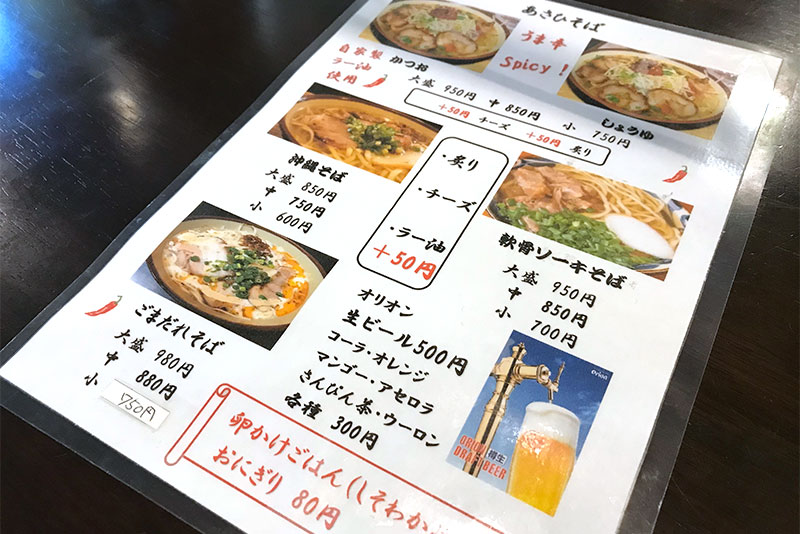 あさひそば
うま辛
Spicy!
自家製
ラー油
使用
かつお
大盛 950円 中 850円 小 750円
しょうゆ
+50円 チーズ +50円 炙り
沖縄そば
大盛 850円
中 750円
小 600円
・炙り
・チーズ
・ラー油
+50円
軟骨ソーキそば
大盛 950円
中 850円
小 700円
ごまだれそば
大盛 980円
中 880円
小 750円
オリオン
生ビール500円
コーラ・オレンジ
マンゴー・アセロラ
さんぴん茶・ウーロン
各種 300円
orion
ORION 樽生
DRAFT BEER
卵かけごはん(しそわか
おにぎり 80円